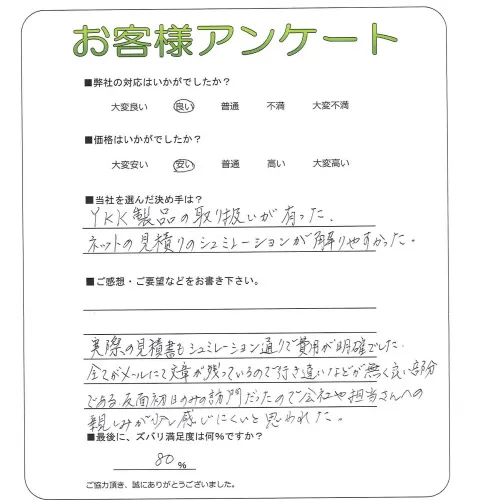 お客様アンケート
■弊社の対応はいかがでしたか？
大変良い 良い 普通 不満 大変不満
■価格はいかがでしたか？
大変安い 安い 普通 高い 大変高い
■当社を選んだ決め手は？
YKK製品の取り扱いが有った、
ネットの見積りのシュミレーションが解りやすかった。
■ご感想・ご要望などをお書き下さい。
実際の見積書もシュミレーション通りで費用が明確でした.
全てがメールにて文章が残っているので行き違いなどが無く良い部分
である.反面初日のみの訪問だったので会社や担当さんへの
親しみが少し感じにくいと思われた。
■最後に、ズバリ満足度は何%ですか？
80%
ご協力頂き、誠にありがとうございました。